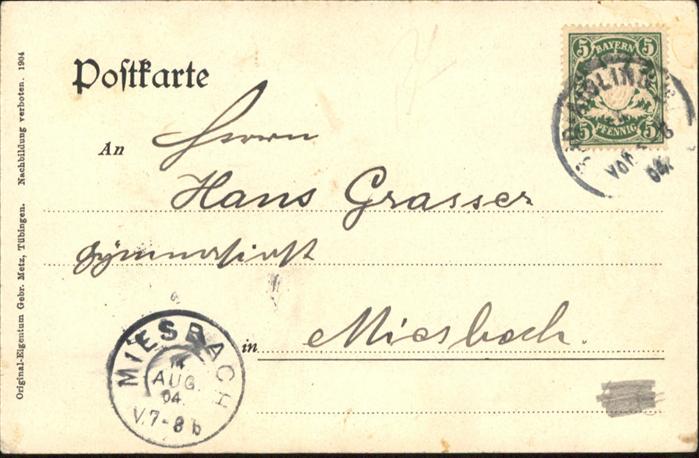 Postkarte
5 BAYERN 5
5 PFENNIG 5
BAD AIBLING
VOR
04
An Herrn
Hans Grasser
Gymnasiast
in Miesbach.
MIESBACH
14
AUG.
04.
V.7-8 b
Original-Eigentum Gebr. Metz, Tübingen. Nachbildung verboten. 1904